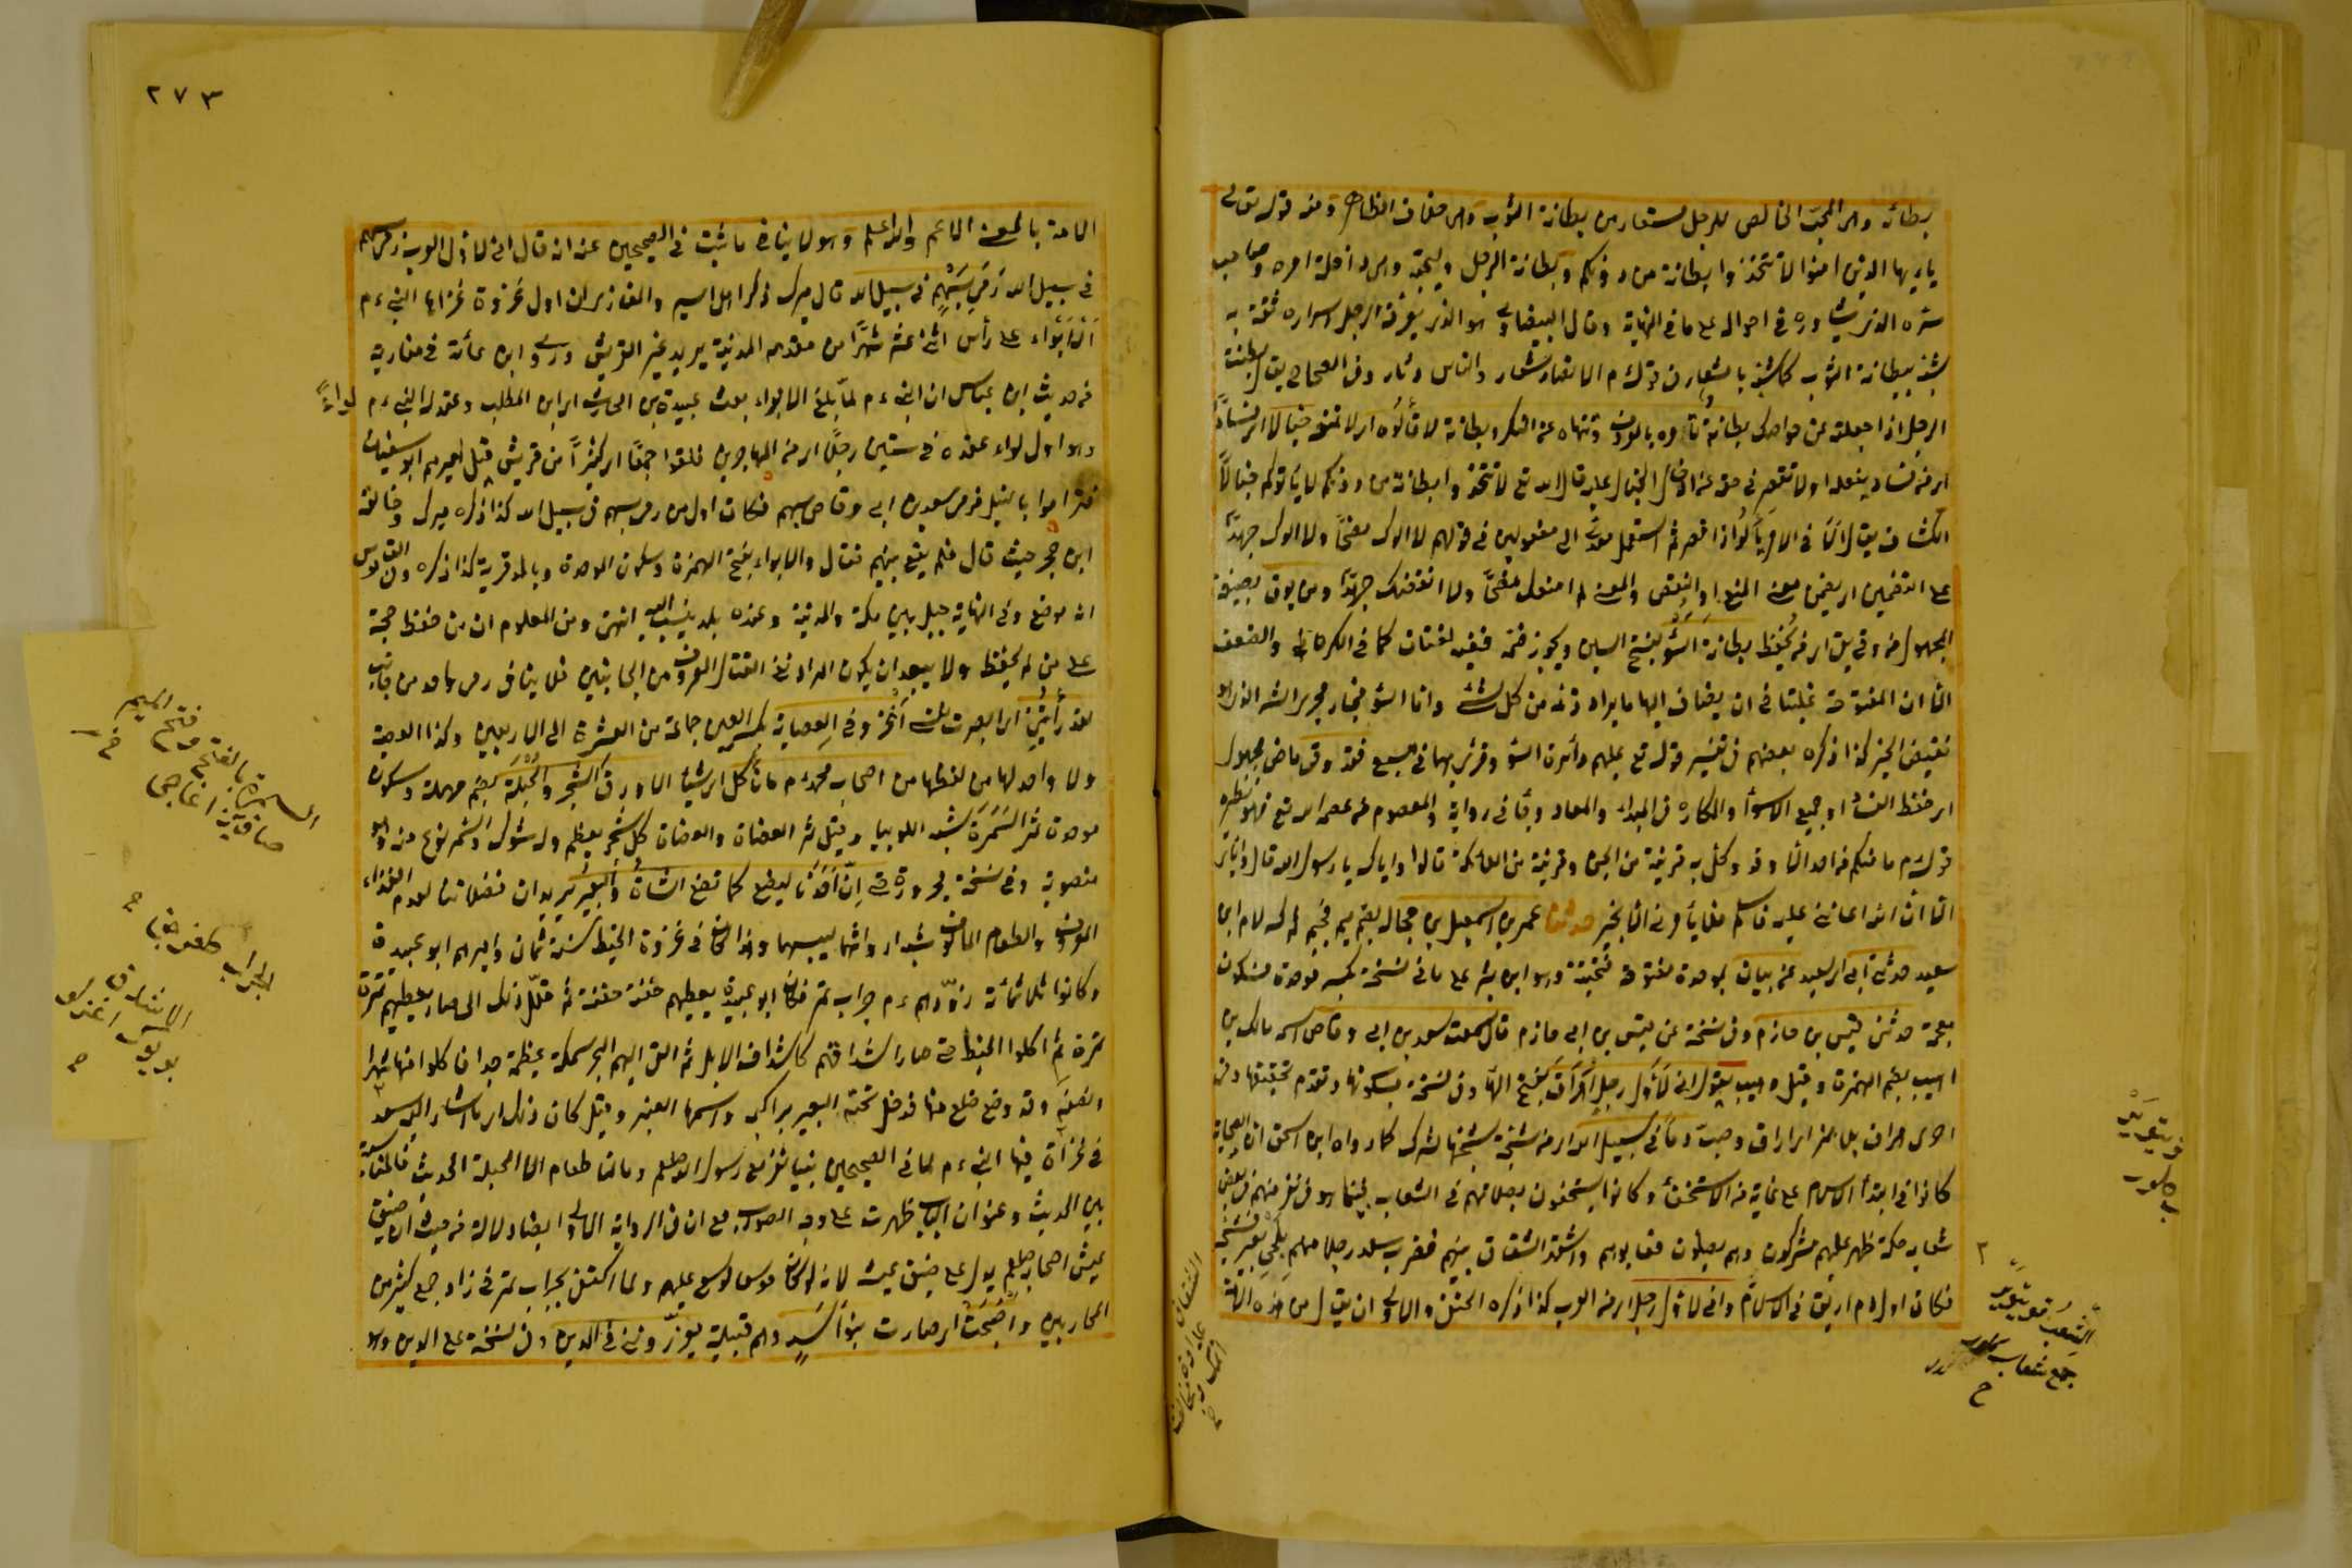 بطانة وهى المحب الخالص للرجل مستعار من بطانة الثوب وهى خلاف الظهارة ومنه قوله تعالى
يا ايها الذين امنوا لا تتخذوا بطانة من دونكم وبطانة الرجل وليجته ومن داخلة امره وصاحب
سره الذى يشاوره فى احواله على ما فى النهاية وقال البيضاوى هو الذى يعرفه الرجل اسراره ثقة به
شبه ببطانة الثوب كما شبه بالشعار فى قوله م الانصار شعار والناس دثار وفى الصحاح يقال بطنت
الرجل اذا جعلته من خواصك بطانة تأمره بالمعروف وتنهاه عن المنكر وبطانة لا تألوه اى لا تمنعه خبالا اى فسادا
اى من فساد يفعله او لا تقصر فى حقه عن ادخال الخبال عليه قال الله تع لا تتخذوا بطانة من دونكم لا يألونكم خبالا
الكشاف يقال ألا فى الامر يألو اذا قصر ثم استعمل معدى الى مفعولين فى قولهم لا الوك نصحا ولا الوك جهدا
على التضمين اى تضمين معنى المنع او النقص والمعنى لا امنعك نصحا ولا انقصك جهدا ومن يوق بصيغة
المجهول من وقى يقى اى من يحفظ بطانة السوء بفتح السين ويجوز ضمه ففيه لغتان كما فى الكره والضعف
الا ان المفتوحة غلبت فى ان يضاف اليها ما يراد ذمه من كل شئ واما السوء فجار مجرى الشر الذى هو
نقيض الخير كذا ذكره بعضهم فى تفسير قوله تع عليهم دائرة السوء وقرئ بهما فى السبع فقد وقى ماض مجهول
اى حفظ الفساد او جميع الاسوأ والمكاره فى المبدأ والمعاد وجاء فى رواية والمعصوم من عصمه الله تع فهو نظيره
قوله م ما منكم من احد الا وقد وكل به قرينه من الجن وقرينه من الملائكة قالوا واياك يا رسول الله قال واياى
الا ان الله اعاننى عليه فاسلم فلا يأمرنى الا بخير حدثنا عمر بن اسمعيل بن مجالد بضم ميم فجيم
سعيد حدثنى ابى اى سعيد عن بيان بموحدة مفتوحة فتحتية وهو ابن بشر على ما فى نسخة بكسر موحدة فسكون
معجمة حدثنى قيس بن حازم وفى نسخة عن قيس بن ابى حازم قال سمعت سعد بن ابى وقاص اسمه مالك بن
اهيب بضم الهمزة وقيل وهيب يقول انى لأول رجل اهراق بفتح الهاء وفى نسخة بسكونها وتقدم تحقيقها وفى
اخرى هراق بلا همز اى اراق وصب دما فى سبيل الله اى من شجة شجها لمشرك كما رواه ابن اسحق ان الصحابة
كانوا فى ابتدأ الاسلام على غاية من الاستخفاء وكانوا يستخفون بصلاتهم فى الشعاب بينما هو فى نفر منهم فى بعض
شعاب مكة ظهر عليهم مشركون وهم يصلون فعابوهم واشتد الشقاق بينهم فضرب سعد رجلا منهم بلحى بعير فشجه
فكان اول دم اريق فى الاسلام وانى لاول رجل اى من العرب كذا ذكره الحنفى والاولى ان يقال من هذه الامة
الشعب
جمع شعاب
٢٧٣
الامة بالمعنى الاعم والله اعلم وهو لا ينافى ما ثبت فى الصحيحين عنه انه قال انى لاول العرب رمى بسهم
فى سبيل الله رمى بسهم فى سبيل الله قال ميرك ذكر اهل السير والمغازى ان اول غزوة غزاها النبى ءم
الابواء على رأس اثنى عشر شهرا من مقدمه المدينة يريد عير القريش وروى ابن عائذ فى مغازيه
من حديث ابن عباس ان النبى ءم لما بلغ الابواء بعث عبيدة بن الحارث ابن المطلب وعقد له النبى ءم لواء
وهو اول لواء عقده فى ستين رجلا اى من المهاجرين فلقوا جمعا اى كثيرا من قريش قيل اميرهم ابو سفيان
فتراموا بالنبل فرمى سعد بن ابى وقاص بسهم فكان اول من رمى بسهم فى سبيل الله كذا ذكره ميرك وخالفه
ابن حجر حيث قال فلم يقع بينهم قتال والابواء بفتح الهمزة وسكون الموحدة وبالمد قرية كذا ذكره وفى القاموس
انه موضع وفى النهاية جبل بين مكة والمدينة وعنده بلد ينسب اليه انتهى ومن المعلوم ان من حفظ حجة
على من لم يحفظ ولا يبعد ان يكون المراد نفى القتال المعروف من الجانبين فلا ينافى رمى واحد من جانب
لقد رأيتنى اى ابصرت نفسى أغزو فى العصابة بكسر العين جماعة من العشرة الى الاربعين وكذا العصبة
ولا واحد لها من لفظها من اصحاب محمد ءم ما نأكل اى شيئا الا ورق الشجر والحبلة بضم مهملة وسكون
موحدة ثمر السمرة يشبه اللوبيا وقيل ثمر العضاة والعضاة كل شجر يعظم وله شوك والسمر نوع منه وهو
منصوبة وفى نسخة مجرورة حتى ان احدنا ليضع كما تضع الشاة والبعير يريد ان فضلاتنا لعدم الغذاء
المعروف والطعام المألوف
وكانوا ثلاثمائة زودهم ءم جراب تمر فكان ابو عبيدة يعطيهم حفنة حفنة ثم قلل ذلك الى صار يعطيهم تمرة
تمرة ثم اكلوا الخبط حتى صار اشداقهم كاشداق الابل ثم القى اليهم البحر سمكة عظيمة جدا فاكلوا منها شهرا
ونصفه وقد وضع ضلع منها فدخل تحته البعير براكبه واسمها العنبر وقيل كان ذلك اى ما اشار اليه سعد
فى غزاة فيها النبى ءم كما فى الصحيحين بينا نغزو مع رسول الله صلعم وما لنا طعام الا الحبلة الحديث فالمناسبة
بين الحديث وعنوان الباب ظهرت على وجه الصواب مع ان فى الرواية الاولى ايضا دلالة من حيث ان ضيق
عيش اصحابه صلعم يدل على ضيق عيشه لانه لو كان موسعا لوسع عليهم ولما اكتفى بجراب تمر فى زاد جمع كثير من
المحاربين واصبحت اى صارت بنو اسد وهم قبيلة يعزرونى فى الدين وفى نسخة على الدين وهو
السمرة بالفتح وضم الميم
صاقيز اغاجى
الجراب